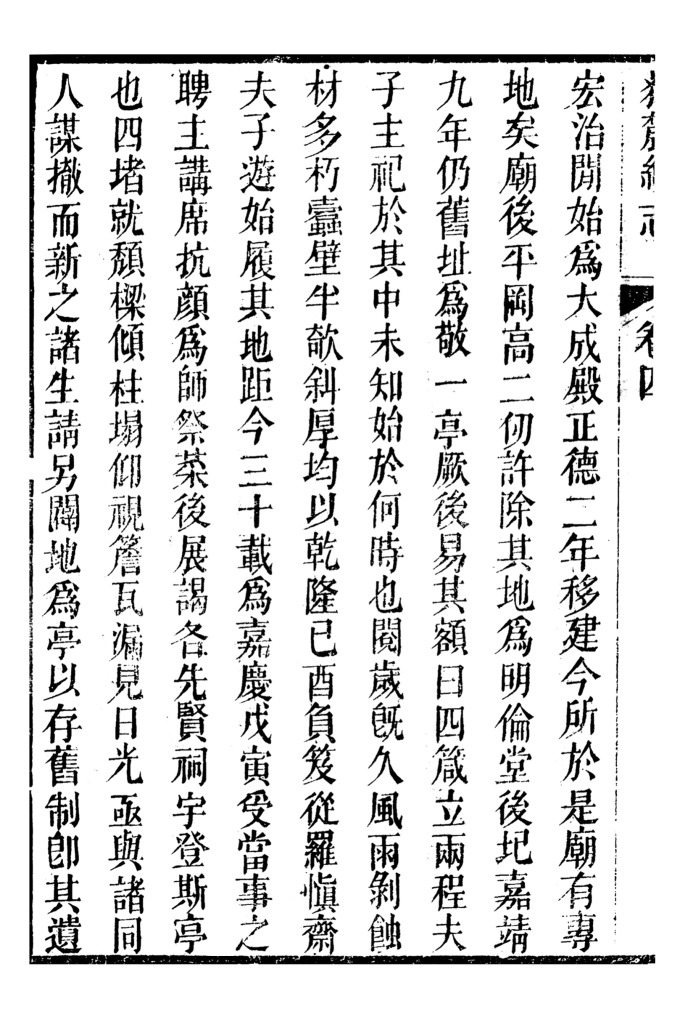 卷四
宏治閒始爲大成殿正德二年移建今所於是廟有專
地矣廟後平岡高二仞許除其地爲明倫堂後圮嘉靖
九年仍舊址爲敬一亭厥後易其額曰四箴立兩程夫
子主祀於其中未知始於何時也閱歲旣久風雨剝蝕
材多朽蠹壁半欹斜厚均以乾隆己酉負笈從羅愼齋
夫子遊始履其地距今三十載爲嘉慶戊寅受當事之
聘主講席抗顔爲師祭菜後展謁各先賢祠宇登斯亭
也四堵就頹樑傾柱塌仰視簷瓦漏見日光亟與諸同
人謀撤而新之諸生請另闢地爲亭以存舊制卽其遺